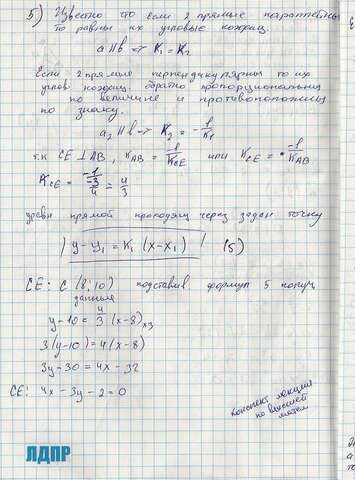 5) Известно что если 2 прямые параллельны
то равны их угловые коэффиц.
a || b → K₁ = K₂
Если 2 прямые перпендикулярны то их
углов. коэффиц. обратно пропорциональны
по величине и противоположны
по знаку.
a₂ || b → K₂ = -1/K₁
т.к CE ⊥ AB, K_AB = -1/K_CE или K_CE = -1/K_AB
K_CE = -1/(-3/4) = 4/3
уравн прямой проходящ через задан точку
y - y₁ = K₁ (x - x₁) (5)
CE: C (8; 10) подставив формул 5 получ
данные
y - 10 = 4/3 (x - 8) ×3
3(y - 10) = 4(x - 8)
3y - 30 = 4x - 32
CE: 4x - 3y - 2 = 0
Конспект лекции
по высшей
матем
ЛДПР